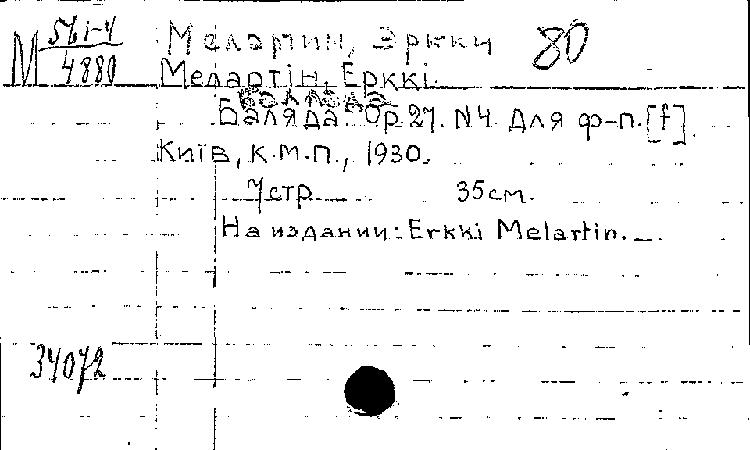 М 561-4
4880
Мелартин, Эркки
80
Мелартін, Ерккі.
Баллада
Баляда. Ор. 27. N4. Для ф-п. [f]
Київ, К.М.П., 1930.
7 стр. 35 см.
На издании: Erkki Melartin.
34072